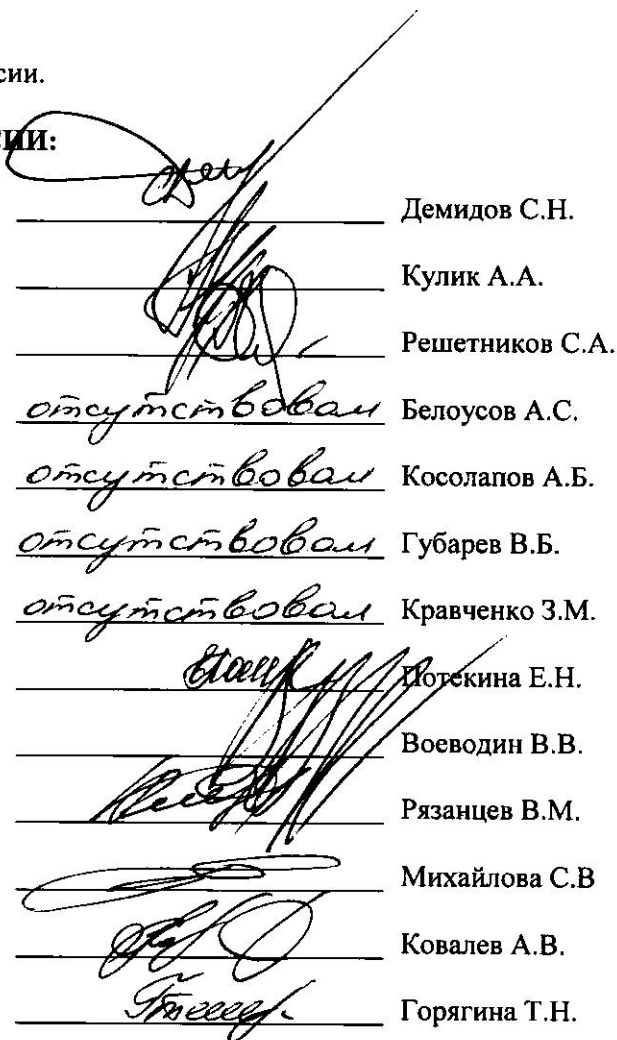 сии.
СИИ:
Демидов С.Н.
Кулик А.А.
Решетников С.А.
отсутствовал Белоусов А.С.
отсутствовал Косолапов А.Б.
отсутствовал Губарев В.Б.
отсутствовал Кравченко З.М.
Потекина Е.Н.
Воеводин В.В.
Рязанцев В.М.
Михайлова С.В
Ковалев А.В.
Горягина Т.Н.